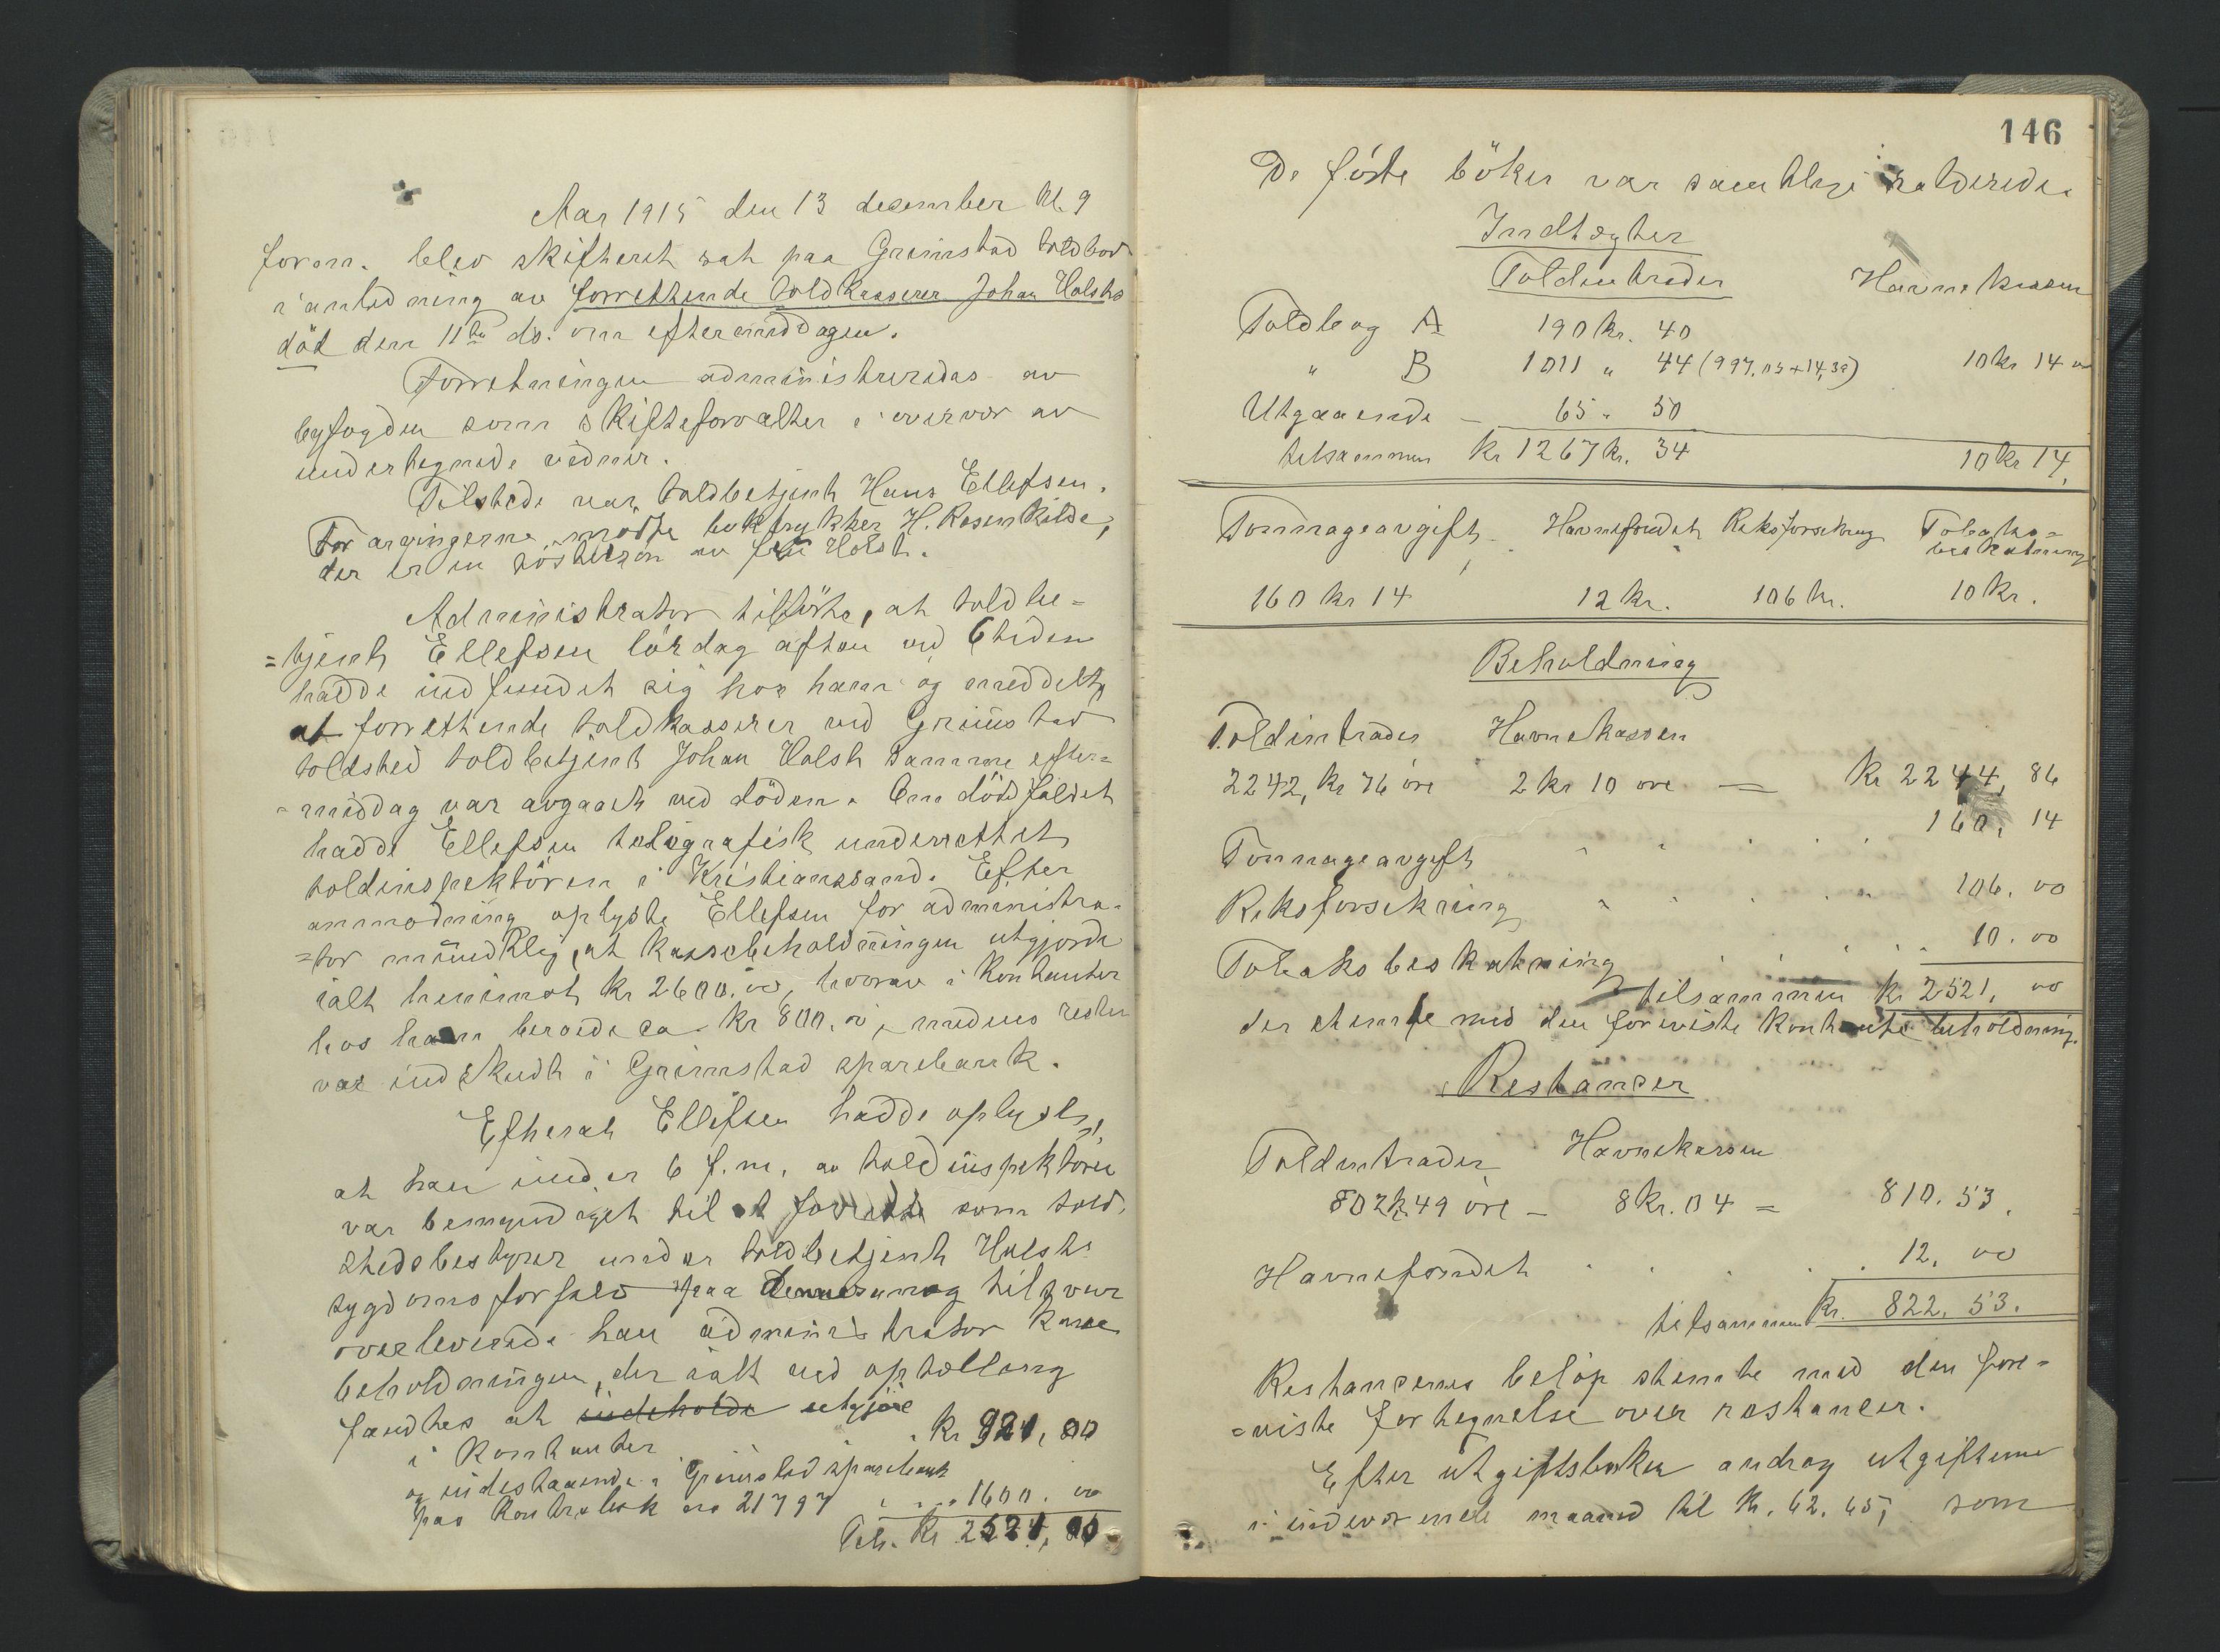 Aar 1915 den 13 desember kl. 9
form. blev skifteret sat paa Grimstad toldbod
i anledning av forrettende Toldkasserer Johan Holsts
död den 11te ds. om eftermiddagen.
Forretningen administreredes av
byfogden som skifteforvalter i overvær av
undertegnede vidner.
Tilstede var toldbetjent Hans Ellefsen.
For arvingerne mödte boktrykker H. Rosenkilde,
der er en söstersön av Holst.
Administrator tilförte, at toldbe=
=tjent Ellefsen lördag aften ved 6 tiden
hadde indfundet sig hos ham og meddelt,
at forrettende toldkasserer ved Grimstad
toldsted toldbetjent Johan Holst samme efter=
=middag var avgaaet ved döden. Om dödsfaldet
hadde Ellefsen telegrafisk underrettet
toldinspektören i Kristianssand. Efter
anmodning oplyste Ellefsen for administra=
=tor mundtlig, at kassebeholdningen utgjorde
ialt henimot kr 2600.00, hvorav i kontanter
hos ham beroede ca. kr 800.00, medens resten
var indskudt i Grimstad sparebank.
Efterat Ellefsen hadde oplyst,
at han under 6 f.m. av toldinspektören
var bemyndiget til at forrette som told=
stedsbestyrer under toldbetjent Holsts
sygdomsforfald paa tilsvar
overleverede han administrator kasse
beholdningen, der ialt ved optælling
fandtes at indeholde utgjöre
i kontanter . kr 921,00
og indestaaende i Grimstad sparebank
paa kontrabok no 21797 . . . 1600.00
Tils. Kr 2521,00
146
De förte böker var samtlige salderede.
Indtægter
Toldintrader Havnekassen
Toldbog A 190 kr. 40
" B 1011 " 44 (997.05+14,39) 10 kr 14
Utgaaende - 65 " 50
tilsammen kr 1267 kr. 34 10 kr 14.
Tonnageavgift Havnefondet Riksforsikring Tobaks=
beskatning
160 kr 14 12 kr. 106 kr. 10 kr.
Beholdning
Toldintrader Havnekassen
2242, kr 76 öre 2 kr 10 öre = kr 2244, 86
160, 14
Tonnageavgift
106. 00
Riksforsikring
10. 00
Tobaksbeskatning
tilsammen kr 2521, 00
der stemte med den foreviste kontante beholdning.
Restancer
Toldintrader Havnekassen
802 kr. 49 öre - 8 kr. 04 = 810. 53.
Havnefondet . . . . 12. 00
tilsammen kr. 822. 53.
Restancernes belöp stemte med den fore=
=viste fortegnelse over restancer.
Efter utgiftsboken androg utgifterne
i indeværende maaned til kr. 62. 65, som